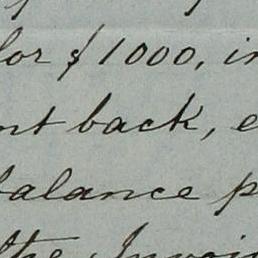 for $1000, in
nt back, e
balance p
the Invoi